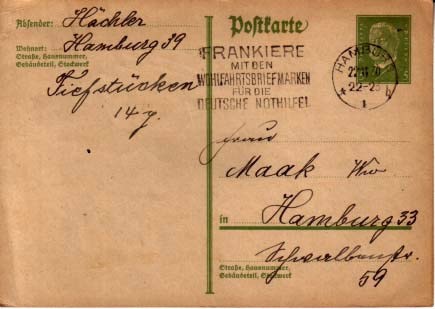 Absender: Hächler
Wohnort: Hamburg 39
Straße, Hausnummer,
Gebäudeteil, Stockwerk
Tiefstücken
14 g.
Postkarte
FRANKIERE
MIT DEN
WOHLFAHRTSBRIEFMARKEN
FÜR DIE
DEUTSCHE NOTHILFE!
HAMBURG
22-23
1
Frau
Maak Ww
in Hamburg 33
Schwalbenstr.
59
Straße, Hausnummer,
Gebäudeteil, Stockwerk